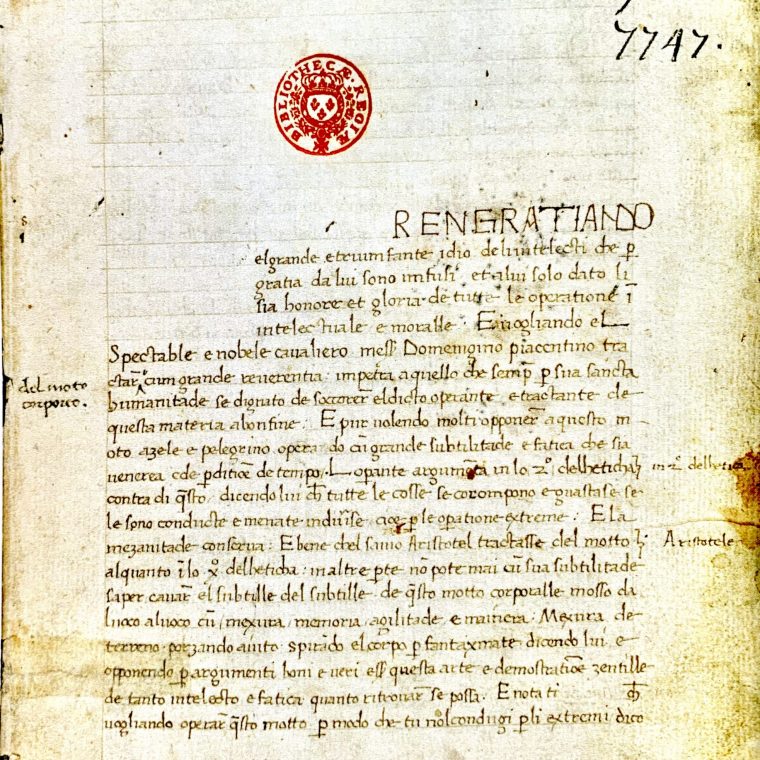 7747.
BIBLIOTHECÆ REGIÆ
RENGRATIANDO
el grande e triumfante idio deli intelecti che p̄
gratia da lui sono infusi et a lui solo dato li
sia honore et gloria de tutte le operatione ī
intelectuale e moralle. E vogliando el
Spectable e nobele cavaliero mess̄ Domenigino piacentino tra
ctar̄ cum grande reverentia impetra aquello che semp̄ p̄ sua sancta
del moto
corporeo.
humanitade se dignato de socorer el dicto operante e tractante de
questa materia al onfine. E pur volendo molti opponer̄ a questo m
oto azele e pelegrino opera do cū grande subtilitade e fatica che sia
venerea e de p̄ditiōe de tempo. L opante argumēta in lo 2º delhetichaȷ
in 2º delhetica
contra di q̄sto dicendo lui ch̄ tutte le cosse se corompono e guastase se
le sono conducte e menate indivīse cioe p̄ le opatione extreme: E la
mezanitade conserva: E bene chel savio Aristotel tractasse del motto
Aristotele
alquanto ī lo Xº delheticha: in altre p̄te nō pote mai cū sua subtilitade
saper cavar̄ el subtille del subtille de q̄sto motto corporalle mosso da
luoco a luoco cū mexura memoria agilitade e mainera. Mexura de
terreno porzando aiuto spirādo el corpo p̄ fantaxmate dicendo lui e
opponendo p̄ argumenti boni e veri ess̄ questa arte e demostratiōe zentille
de tanto intelecto e fatica quanto ritrovar̄ se possa. E nota ti ch̄
vogliando operar q̄sto motto p̄ modo che tu nolcondugi p̄ li extremi dico